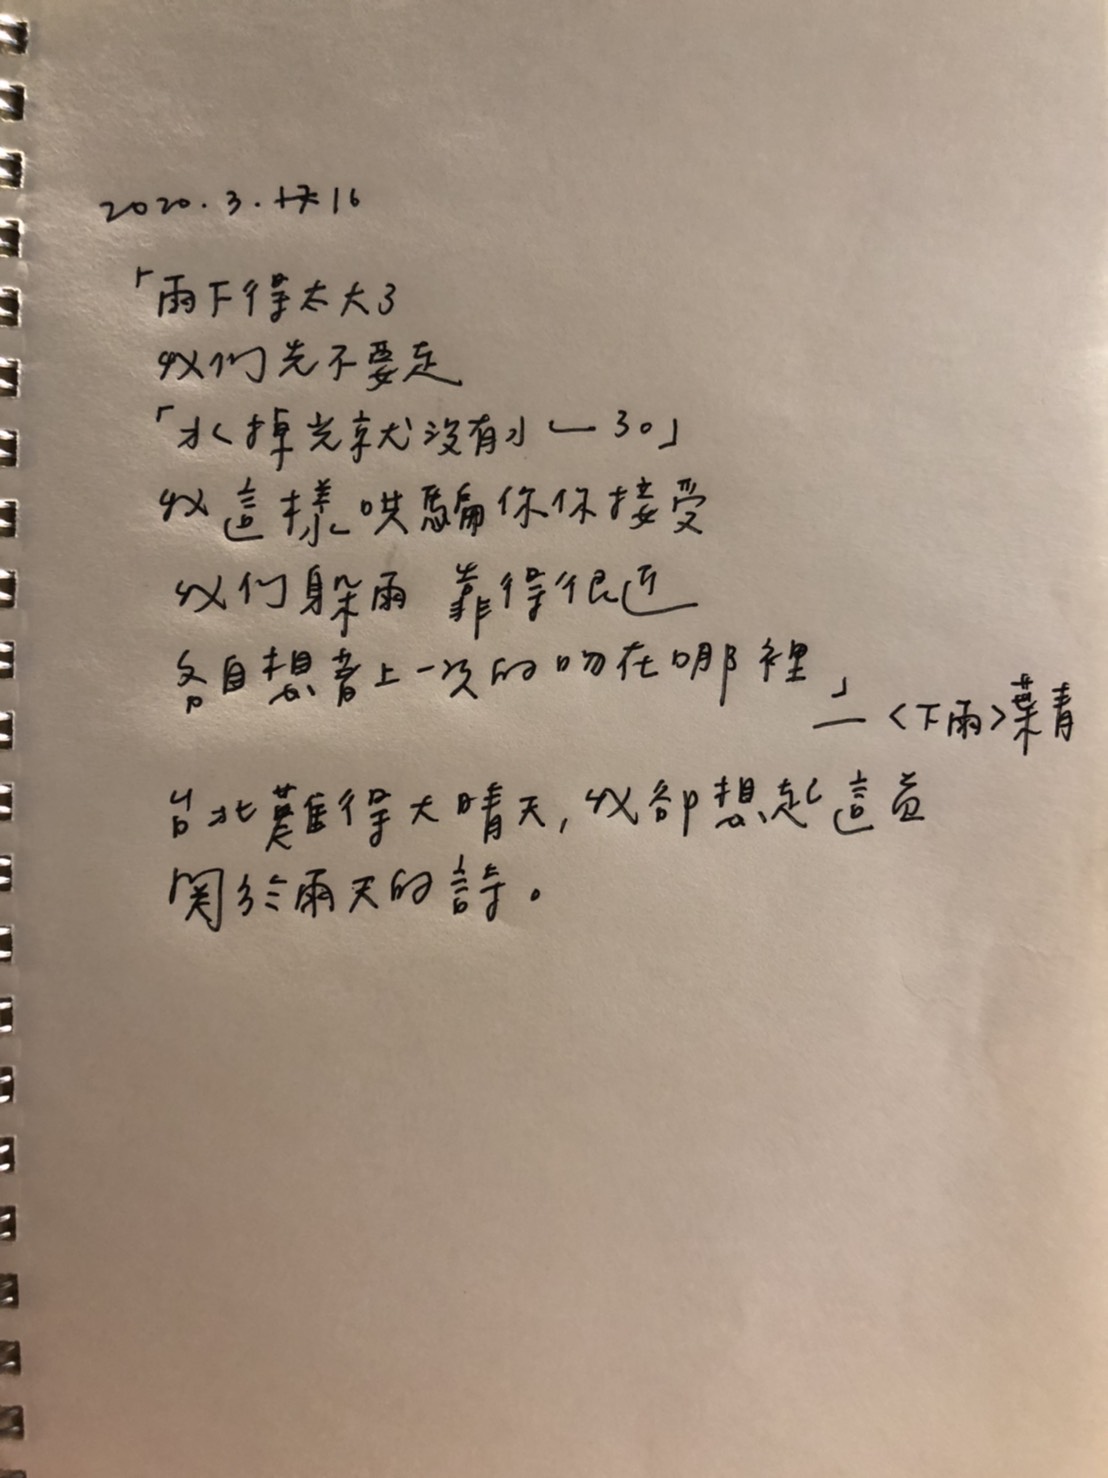 2020.3.16
「雨下得太大了
我們先不要走
「水掉光就沒有水了。」
我這樣哄騙你你接受
我們躲雨 靠得很近
各自想著上一次的吻在哪裡」
—〈下雨〉葉青
台北難得大晴天,我卻想起這首
関於雨天的詩。